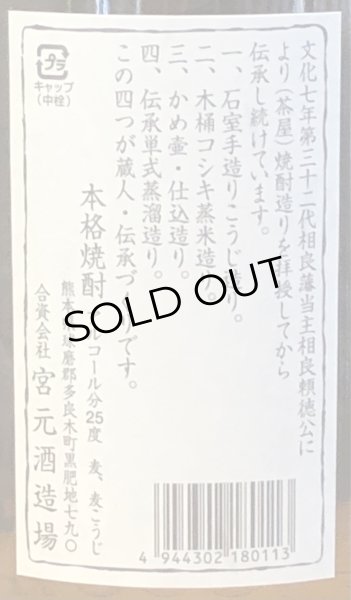 文化七年第三十二代相良藩当主相良頼徳公に
より(茶屋)焼酎造りを拝授してから
伝承し続けています。
一、石室手造りこうじ造り。
二、木桶コシキ蒸米造り。
三、かめ壷・仕込造り。
四、伝承単式蒸溜造り。
この四つが蔵人・伝承づくりです。
本格焼酎 アルコール分25度 麦、麦こうじ
熊本県球磨郡多良木町黒肥地七九〇
合資会社 宮元酒造場
プラ
キャップ
(中栓)
SOLD OUT
4 944302 180113